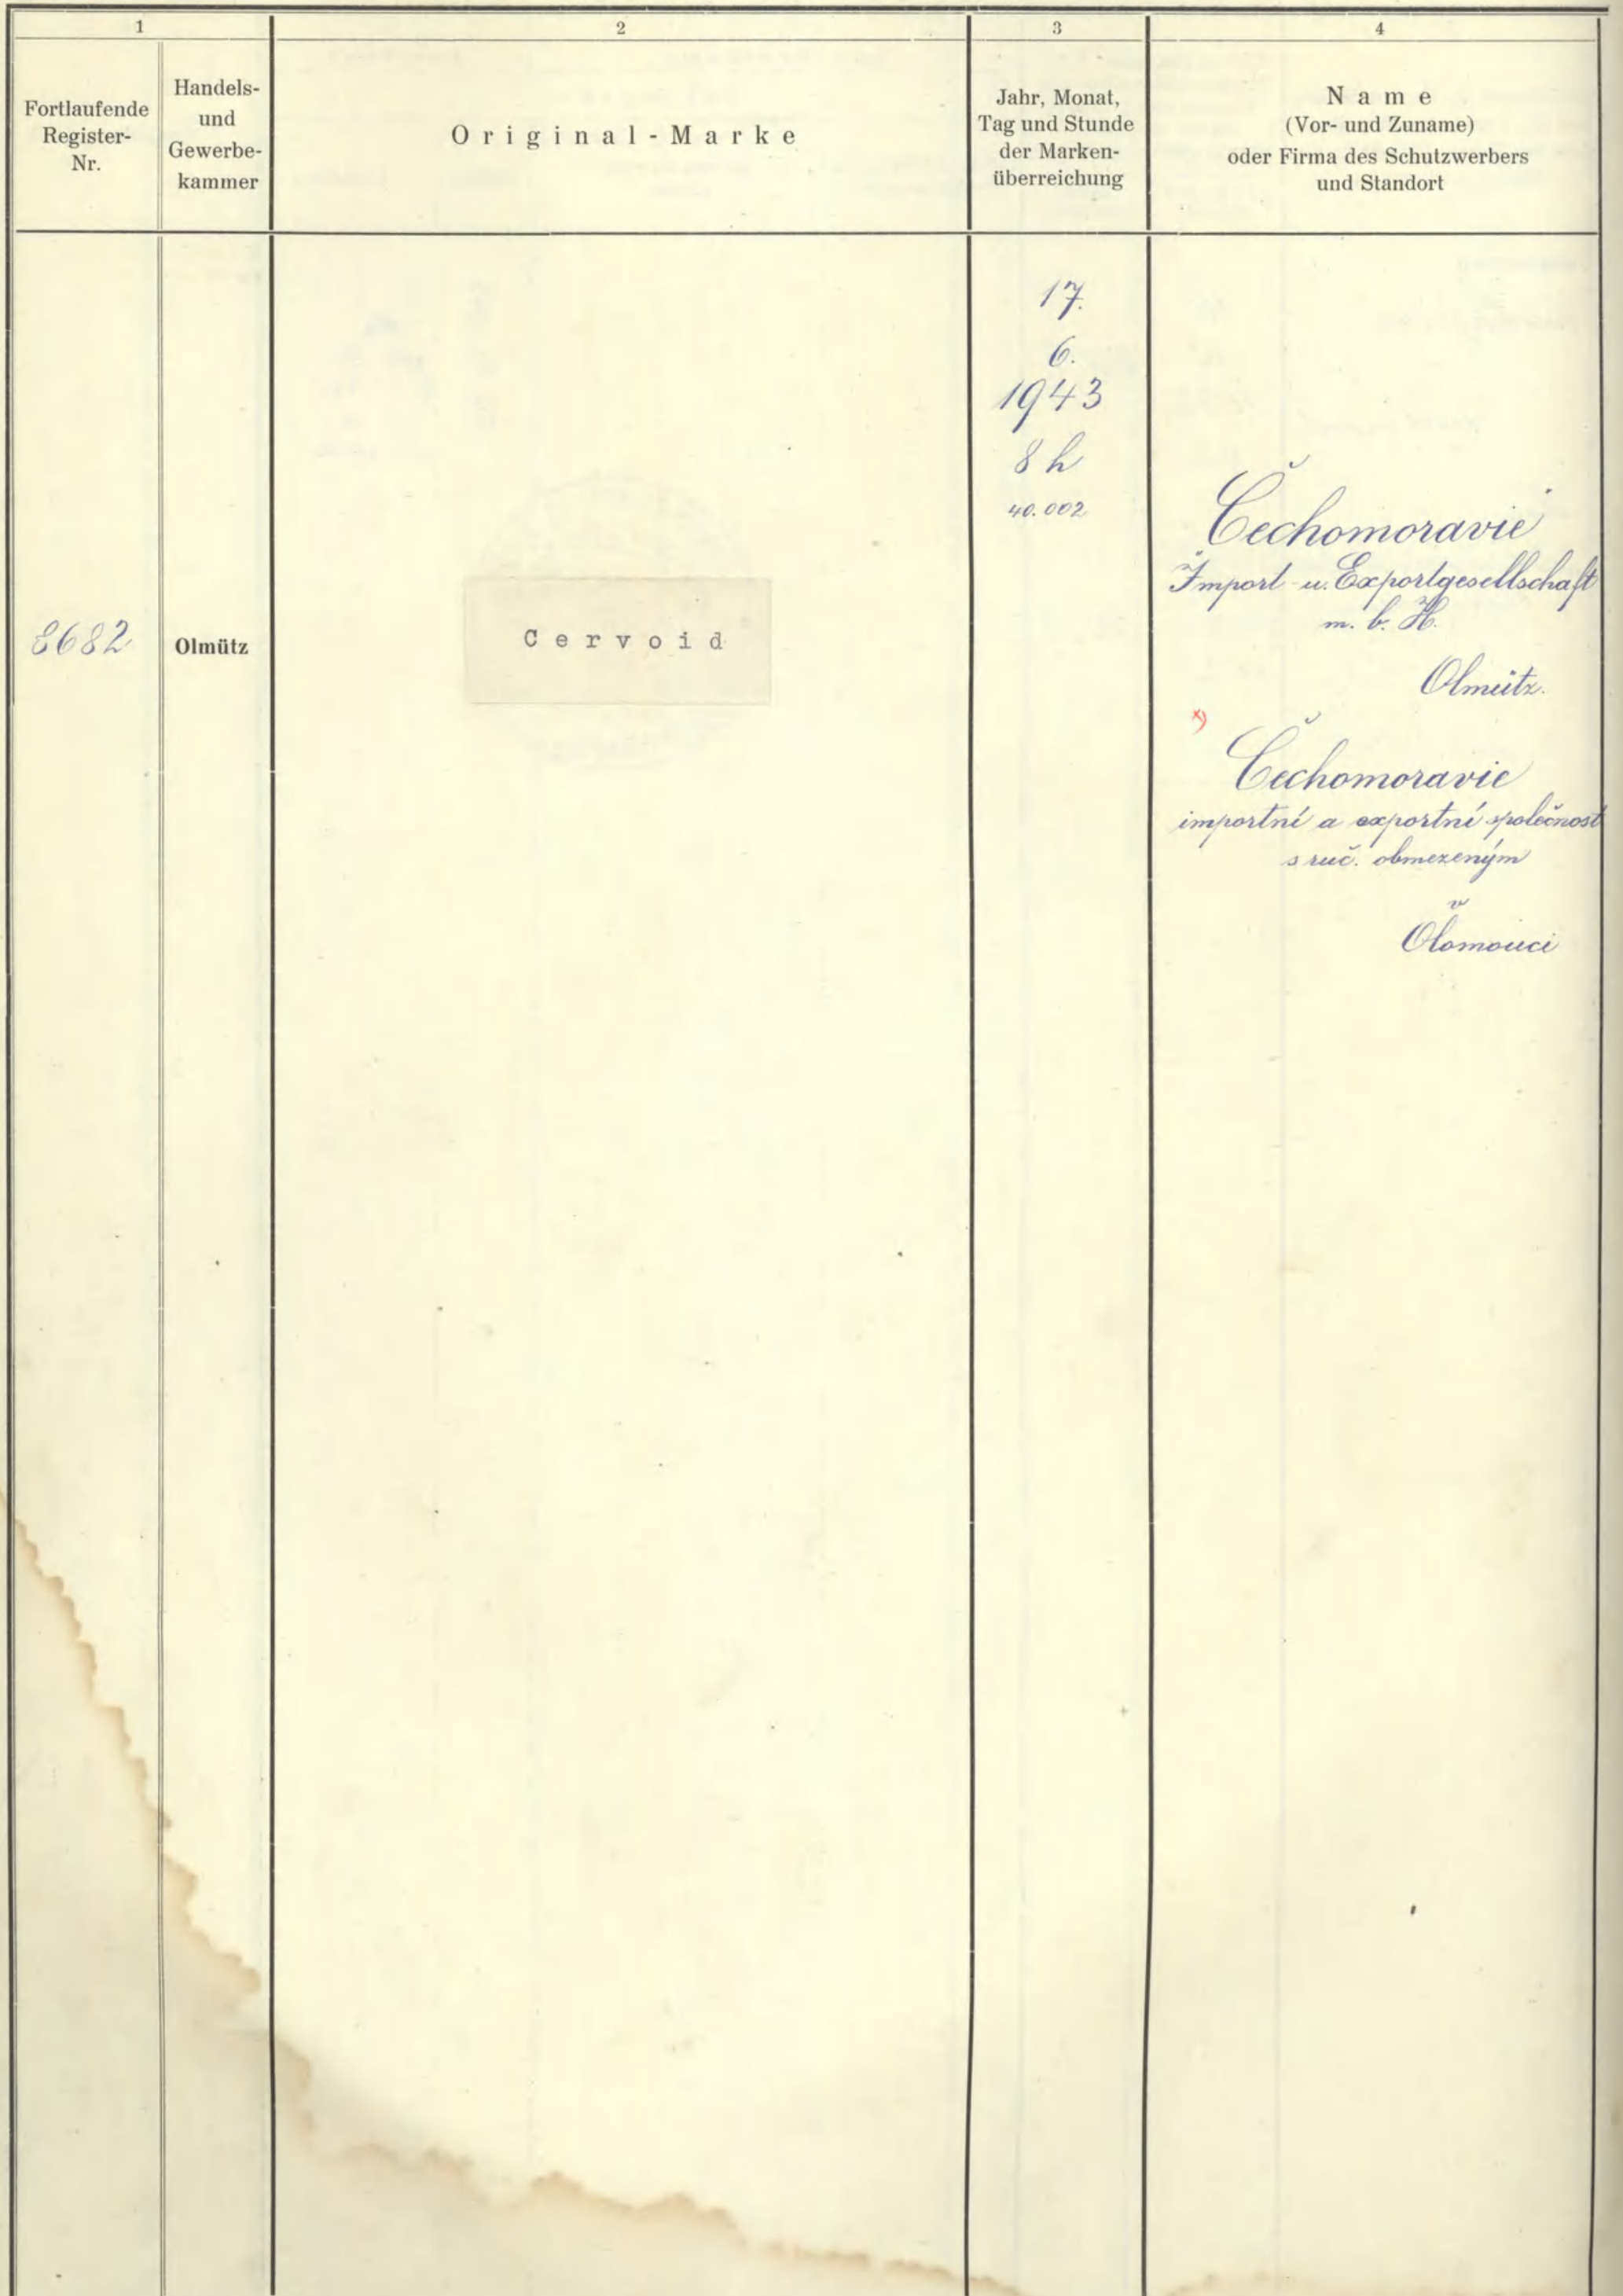 1
2
3
4
Fortlaufende
Register-
Nr.
Handels-
und
Gewerbe-
kammer
Original-Marke
Jahr, Monat,
Tag und Stunde
der Marken-
überreichung
Name
(Vor- und Zuname)
oder Firma des Schutzwerbers
und Standort
8682
Olmütz
Cervoid
17.
6.
1943
8 h
40.002
Čechomoravie
Import- u. Exportgesellschaft
m. b. H.
Olmütz.
x)
Čechomoravie
importní a exportní společnost
s ruč. obmezeným
v
Olomouci